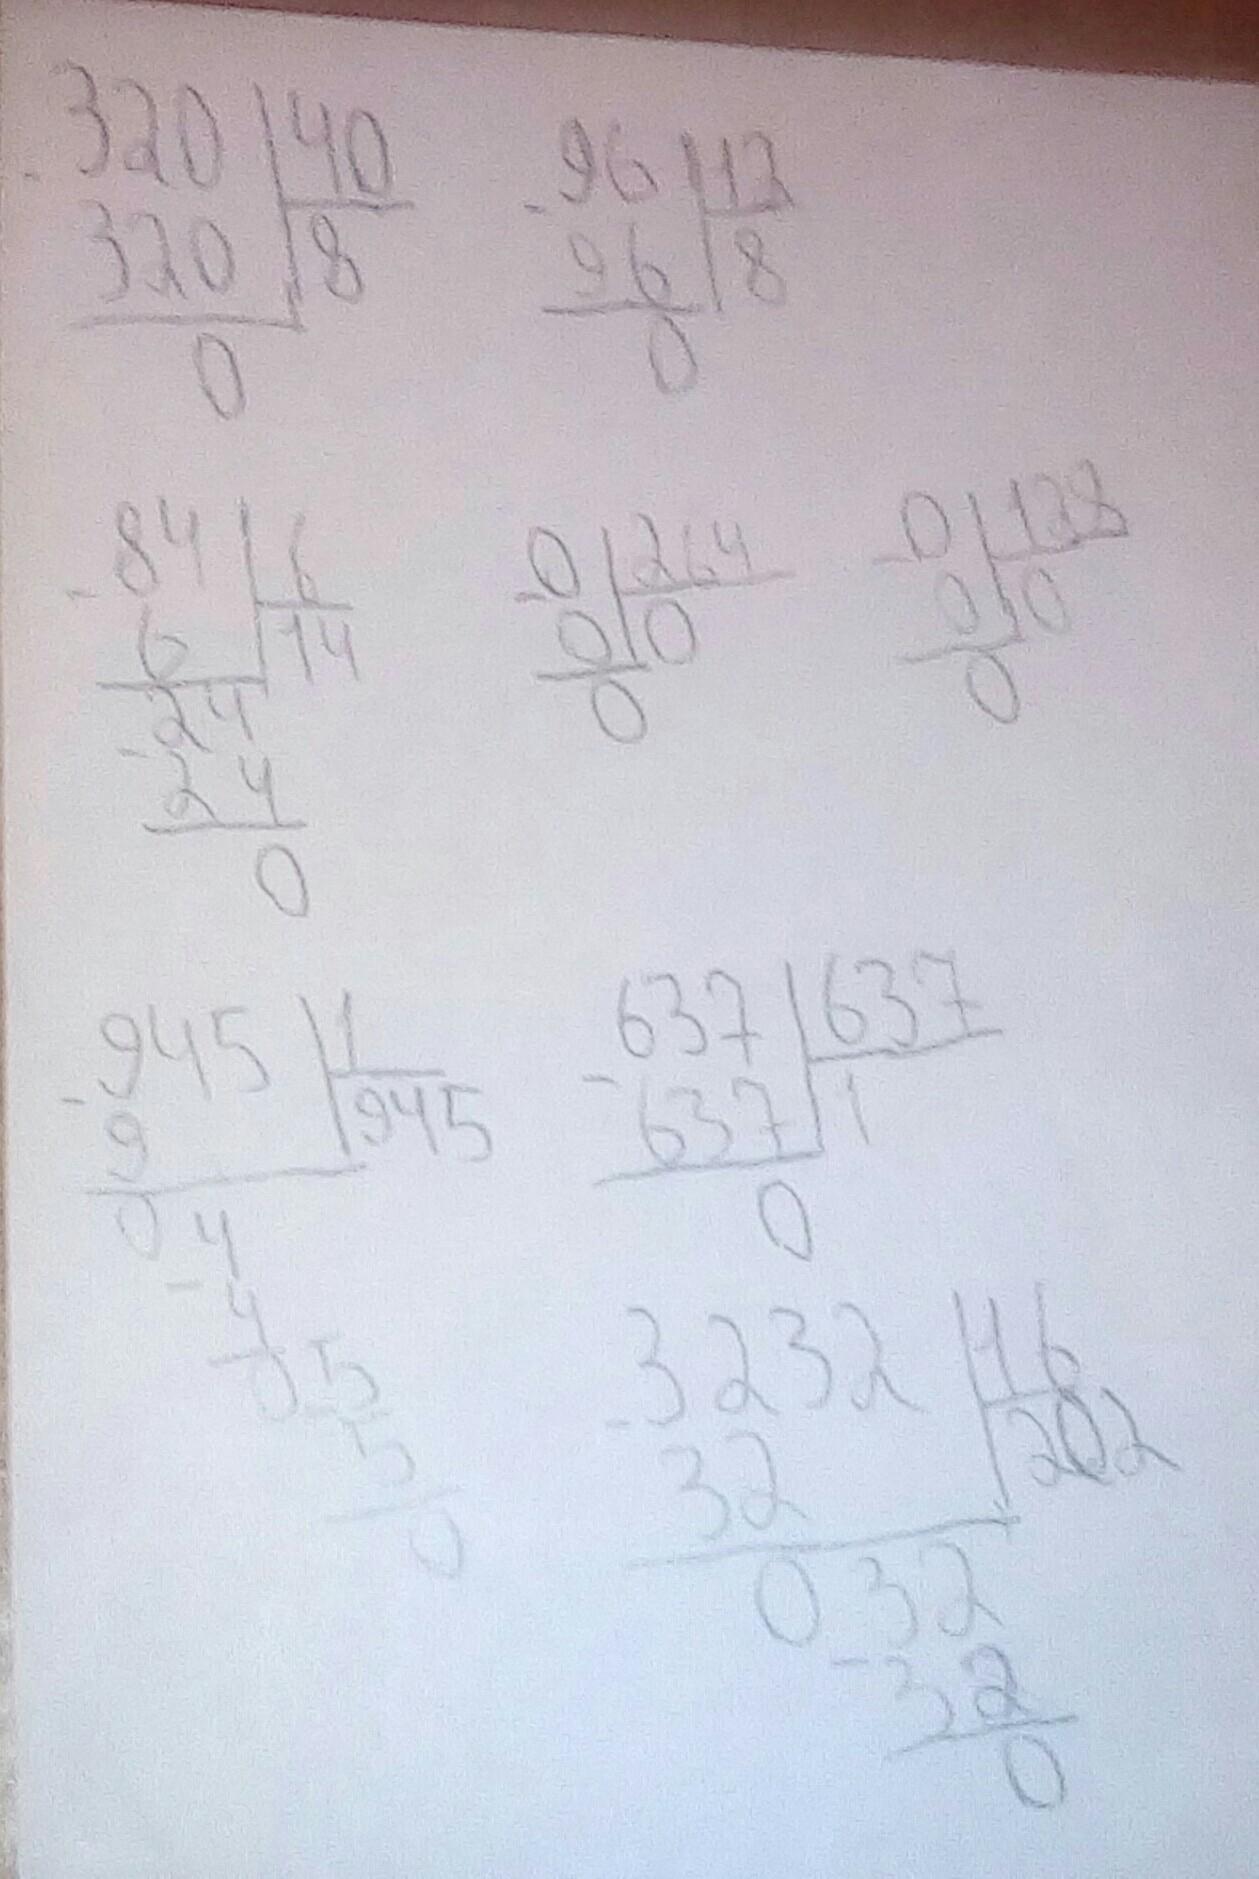 - 320 | 40
320 | 8
0
- 96 | 12
96 | 8
0
- 84 | 6
6 | 14
- 24
24
0
- 0 | 264
0 | 0
0
- 0 | 128
0 | 0
0
- 945 | 1
9 | 945
0 4
- 4
0 5
- 5
0
- 637 | 637
637 | 1
0
- 3232 | 16
32 | 202
0 32
- 32
0